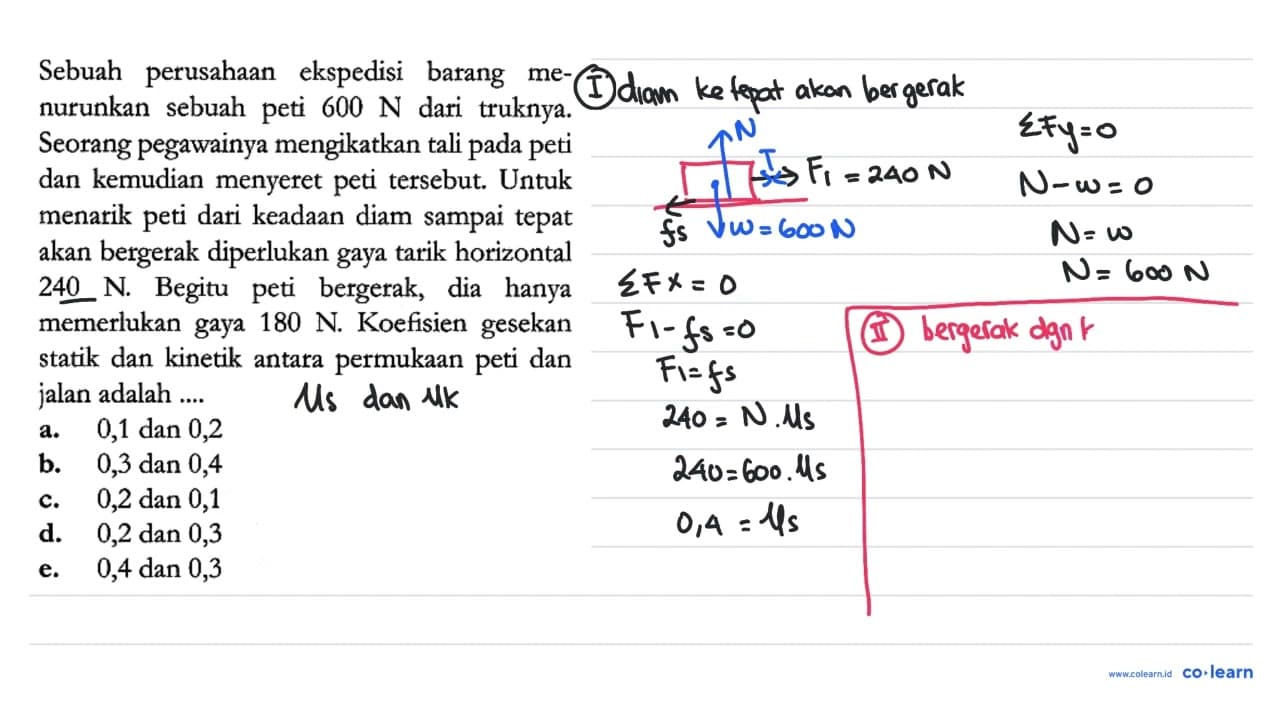 Sebuah perusahaan ekspedisi barang me-
nurunkan sebuah peti 600 N dari truknya.
Seorang pegawainya mengikatkan tali pada peti
dan kemudian menyeret peti tersebut. Untuk
menarik peti dari keadaan diam sampai tepat
akan bergerak diperlukan gaya tarik horizontal
240 N. Begitu peti bergerak, dia hanya
memerlukan gaya 180 N. Koefisien gesekan
statik dan kinetik antara permukaan peti dan
jalan adalah ....
μs dan μk
a. 0,1 dan 0,2
b. 0,3 dan 0,4
c. 0,2 dan 0,1
d. 0,2 dan 0,3
e. 0,4 dan 0,3
I diam ke tepat akan bergerak
N
F1 = 240 N
fs
w = 600 N
ΣFx = 0
F1 - fs = 0
F1 = fs
240 = N . μs
240 = 600 . μs
0,4 = μs
ΣFy = 0
N - w = 0
N = w
N = 600 N
II bergerak dgn
www.colearn.id co·learn